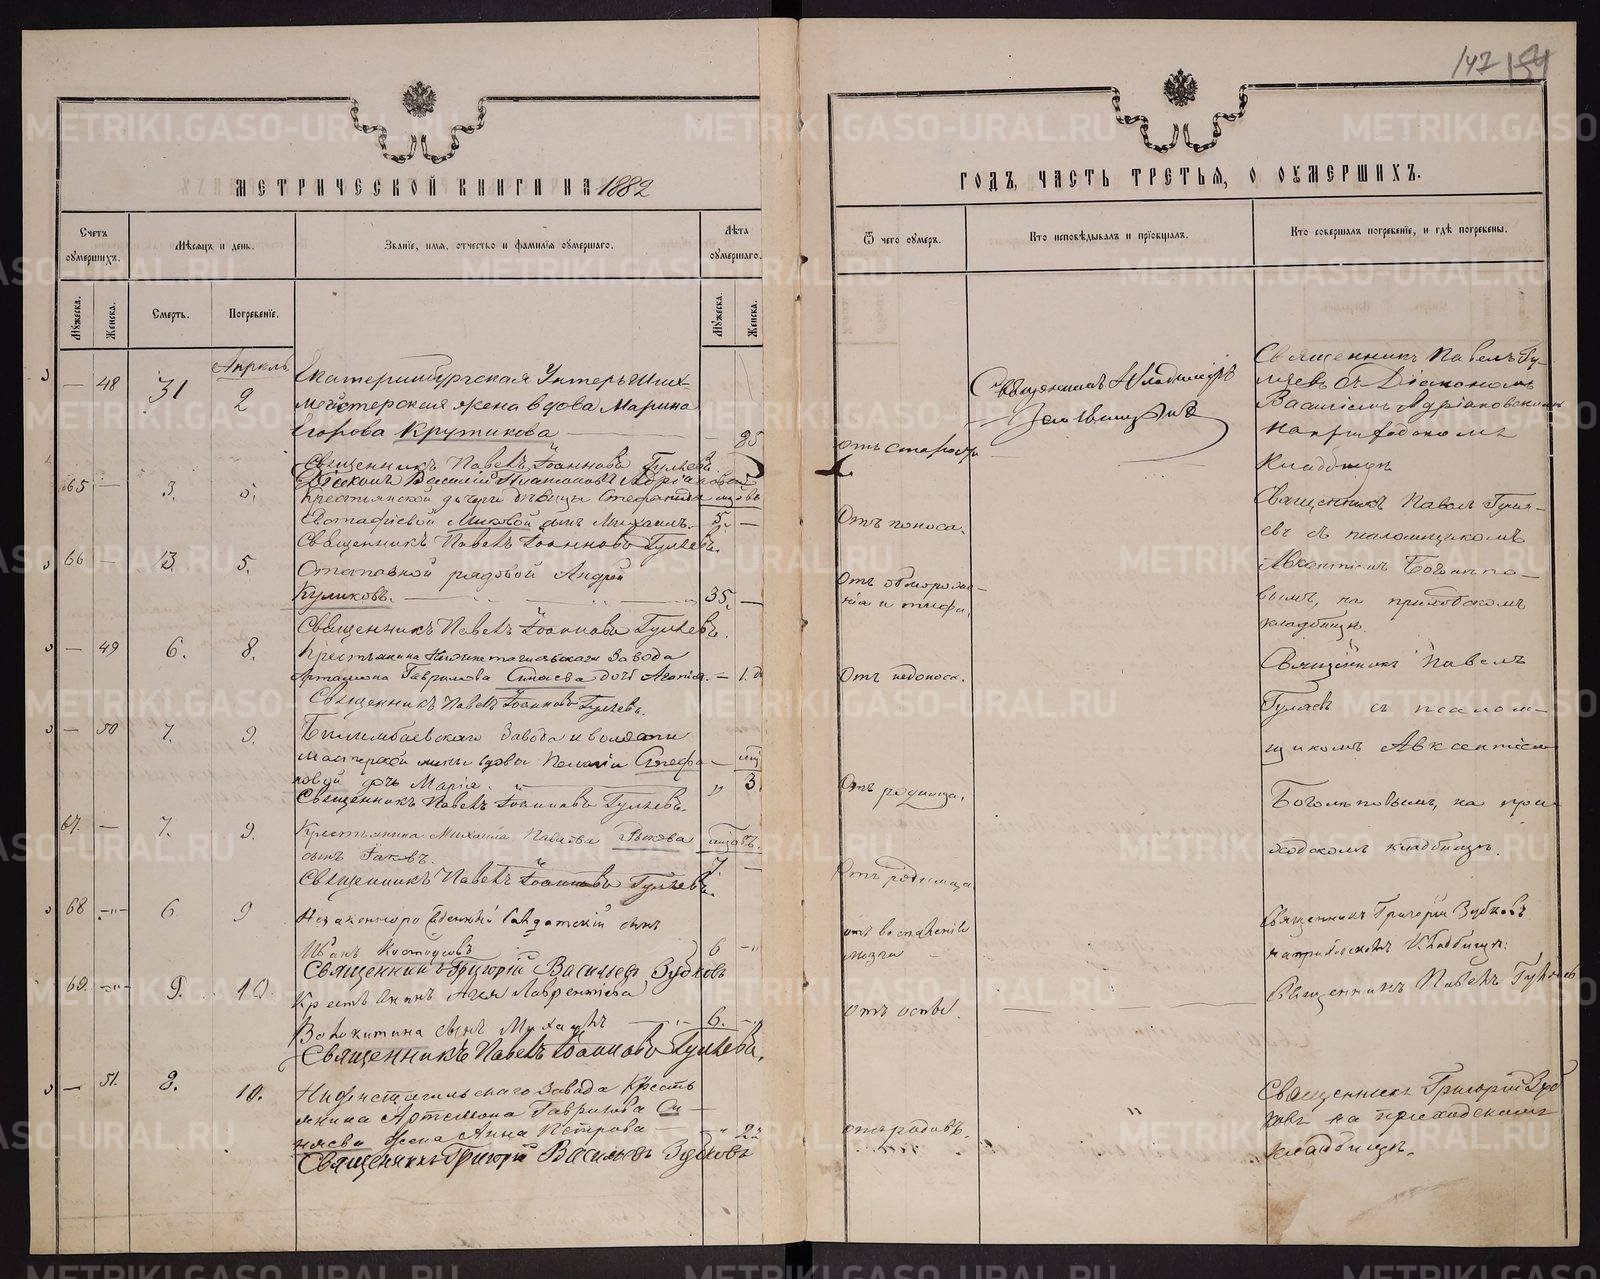 147 154
МЕТРИЧЕСКОЙ КНИГИ НА 1882
Счетъ оумершихъ.
Мѣсяцъ и день.
Званіе, имя, отчество и фамилія оумершаго.
Лѣта оумершаго.
Мужеска.
Женска.
Смерть.
Погребеніе.
Мужеска.
Женска.
Апрель
— 48 31 2 Екатеринбургская Унтеръ Шихт-
мейстерская жена вдова Марина
Егорова Крутикова — 85
Священникъ Павелъ Іоанновъ Гуляевъ.
Діаконъ Василій Платоновъ Адріановскій
65 — 3. 5. Крестьянской дочери дѣвицы Стефаниды мцовъ
Евстафіевой сынъ Михаилъ. 5. —
Священникъ Павелъ Іоанновъ Гуляевъ.
66 — 3. 5. Отставной рядовой Андрей
Куликовъ. 35. —
Священникъ Павелъ Іоанновъ Гуляевъ.
— 49 6. 8. Крестьянина Нижнетагильскаго завода
Артамона Гаврилова Синяева дочь — 1. д
Священникъ Павелъ Іоанновъ Гуляевъ.
— 50 7. 9. Билимбаевскаго завода и волости
мастерской жены вдовы Пелагіи Стефа-
новой дочь Марія. 3
Священникъ Павелъ Іоанновъ Гуляевъ.
67. — 7. 9. Крестьянина Михаила Павлова Рыкова
сынъ Іаковъ. 7. —
Священникъ Павелъ Іоанновъ Гуляевъ.
68 —"— 6 9 Незаконнорожденный Солдатскій сынъ
Иванъ 6 —"
Священникъ Григорій Васильевъ Зубковъ
69. —"— 9. 10. Крестьянинъ Лаврентіева
Волокитина сынъ Михаилъ 6. —"
Священникъ Павелъ Іоанновъ Гуляевъ.
— 51. 8. 10. Нижнетагильскаго Завода Кресть
янина Артемона Гаврилова Си-
няева жена Анна Петрова — 22
Священникъ Григорій Васильевъ Зубковъ
ГОДЪ, ЧАСТЬ ТРЕТЬЯ, О ОУМЕРШИХЪ.
Ѿ чего оумеръ.
Кто исповѣдывалъ и пріобщалъ.
Кто совершалъ погребеніе, и гдѣ погребены.
отъ старости
Отъ поноса.
Отъ недоноск.
Отъ родимца.
Отъ родимца
отъ воспаленія
мозга
отъ оспы.
отъ родовъ.
Священникъ Владиміръ
Священникъ Павелъ Гу-
ляевъ съ Діакономъ
Василіемъ Адріановскимъ
на приходскомъ
кладбищѣ
Священникъ Павелъ Гуля-
евъ съ псаломщикомъ
Авксентіемъ Боголѣпо-
вымъ, на приходскомъ
кладбищѣ.
Священникъ Павелъ
Гуляевъ съ псалом-
щикомъ Авксентіемъ
Боголѣповымъ, на при-
ходскомъ кладбищѣ.
Священникъ Григорій Зубковъ
на приходскомъ кладбищѣ.
Священникъ Павелъ Гуляевъ
Священникъ Григорій Зуб
ковъ на приходскомъ
кладбищѣ.
METRIKI.GASO-URAL.RU